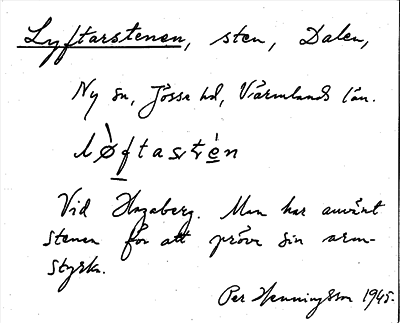 Lyftarstenen, sten, Dalen,
Ny sn, Jösse hd, Värmlands län.
lø̀ftastèn
Vid Hagaberg. Man har använt
stenen för att pröva sin arm-
styrka.
Per Henningsson 1945.